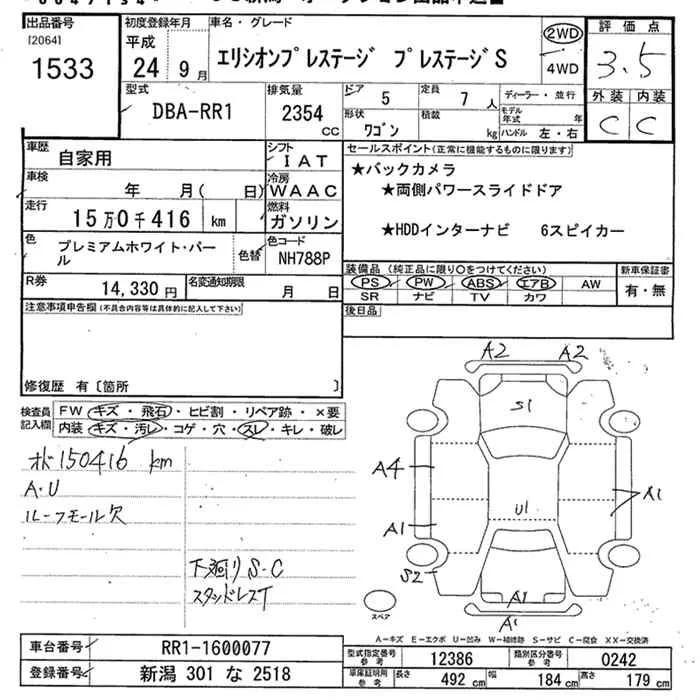 出品番号
[2064]
1533
初度登録年月
平成
24年 9月
車名・グレード
エリシオンプレステージ プレステージS
2WD
4WD
評価点
3.5
外装 内装
C C
型式
DBA-RR1
排気量
2354
cc
ドア 5
定員 7 人
ディーラー・並行
形状 ワゴン
積載 kg
モデル年式 年
ハンドル 左・右
車歴
自家用
シフト
IAT
車検
年 月( 日)
冷房
WAAC
走行
15万0千416 km
燃料
ガソリン
色
プレミアムホワイト・パール
色替
色コード
NH788P
R券
14,330 円
名変通知期限
月 日
セールスポイント(正常に機能するものに限ります)
★バックカメラ
★両側パワースライドドア
★HDDインターナビ 6スピイカー
装備品 (純正品に限り○をつけてください)
PS PW ABS エアB AW
SR ナビ TV カワ
新車保証書
有・無
後日品
注意事項申告欄(不具合内容等は具体的に記入して下さい)
修復歴 有〔箇所 〕
検査員記入欄
FW キズ・飛石・ヒビ割・リペア跡・×要
内装 キズ・汚レ・コゲ・穴・スレ・キレ・破レ
オド150416 km
A・U
ルーフモール欠
下廻りS・C
スタッドレスT
A2 A2
S1
A4
U1
A1
A1
S2
A1
A1
スペア
A-キズ E-エクボ U-凹み W-補修跡 S-サビ C-腐食 XX-交換済
車台番号
RR1-1600077
登録番号
新潟 301 な 2518
型式指定番号 参考
12386
類別区分番号 参考
0242
車庫証明用 参考
長さ 492 cm
幅 184 cm
高さ 179 cm